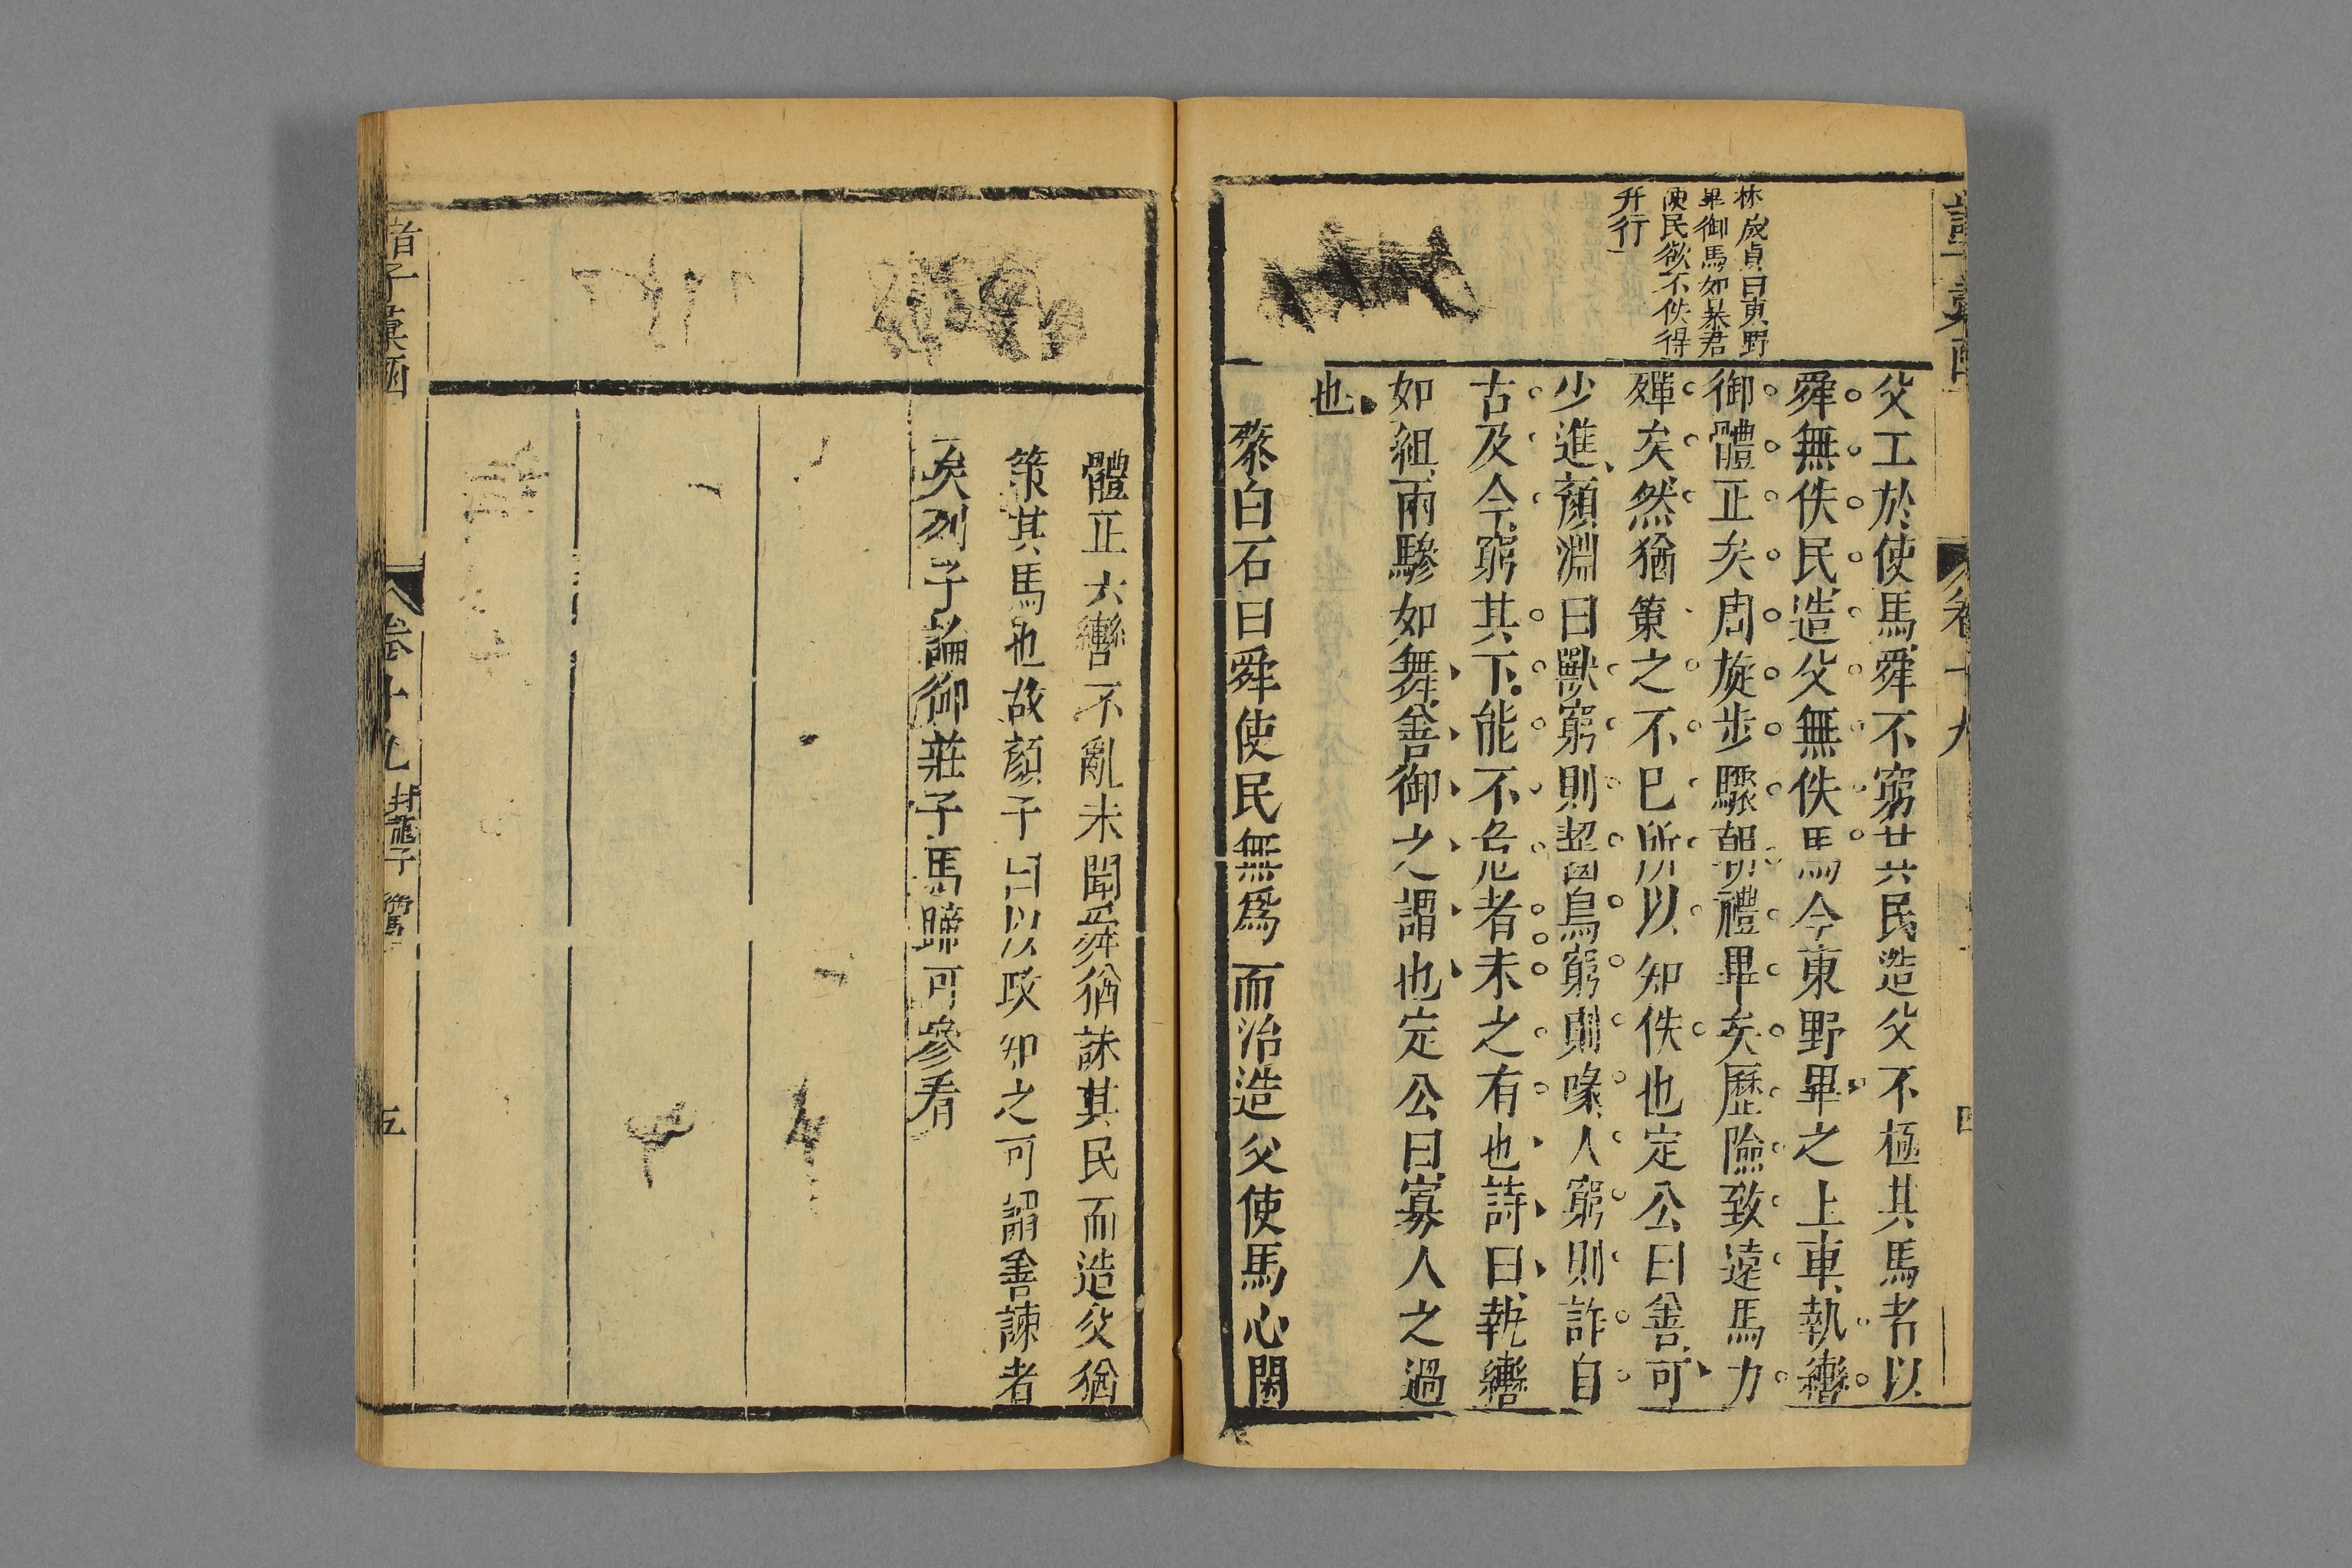 林咸貞曰東野
畢御馬如暴君
使民欲不佚得
乎行
父工於使馬舜不窮其民造父不極其馬者以
舜無佚民造父無佚馬今東野畢之上車執轡
御體正矣周旋步驟朝禮畢矣歷險致遠馬力
殫矣然猶策之不已所以知佚也定公曰善可
少進顏淵曰獸窮則齧鳥窮則喙人窮則詐自
古及今窮其下能不危者未之有也詩曰執轡
如組兩驂如舞善御之謂也定公曰寡人之過
也
蔡白石曰舜使民無爲而治造父使馬心閑
體正六轡不亂未聞舜猶誅其民而造父猶
策其馬也故顏子曰以政知之可謂善諫者
矣列子論御莊子馬蹄可參看
卷十九
五